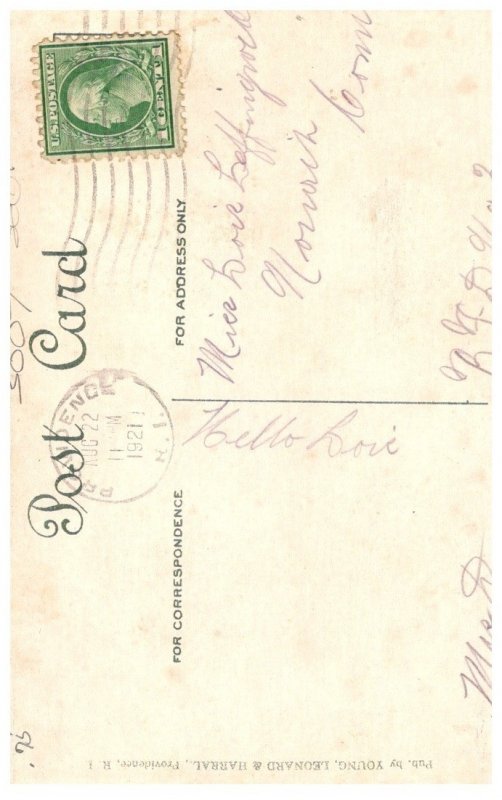 Post Card
U.S. POSTAGE
1 CENT 1
AUG 22
11
M
1921
R.I.
FOR CORRESPONDENCE
FOR ADDRESS ONLY
Hello Loie
Miss Loie Leffingwell
Norwich Conn
R F D No 2
Pub. by YOUNG, LEONARD & HARRAL., Providence, R. I.
.75